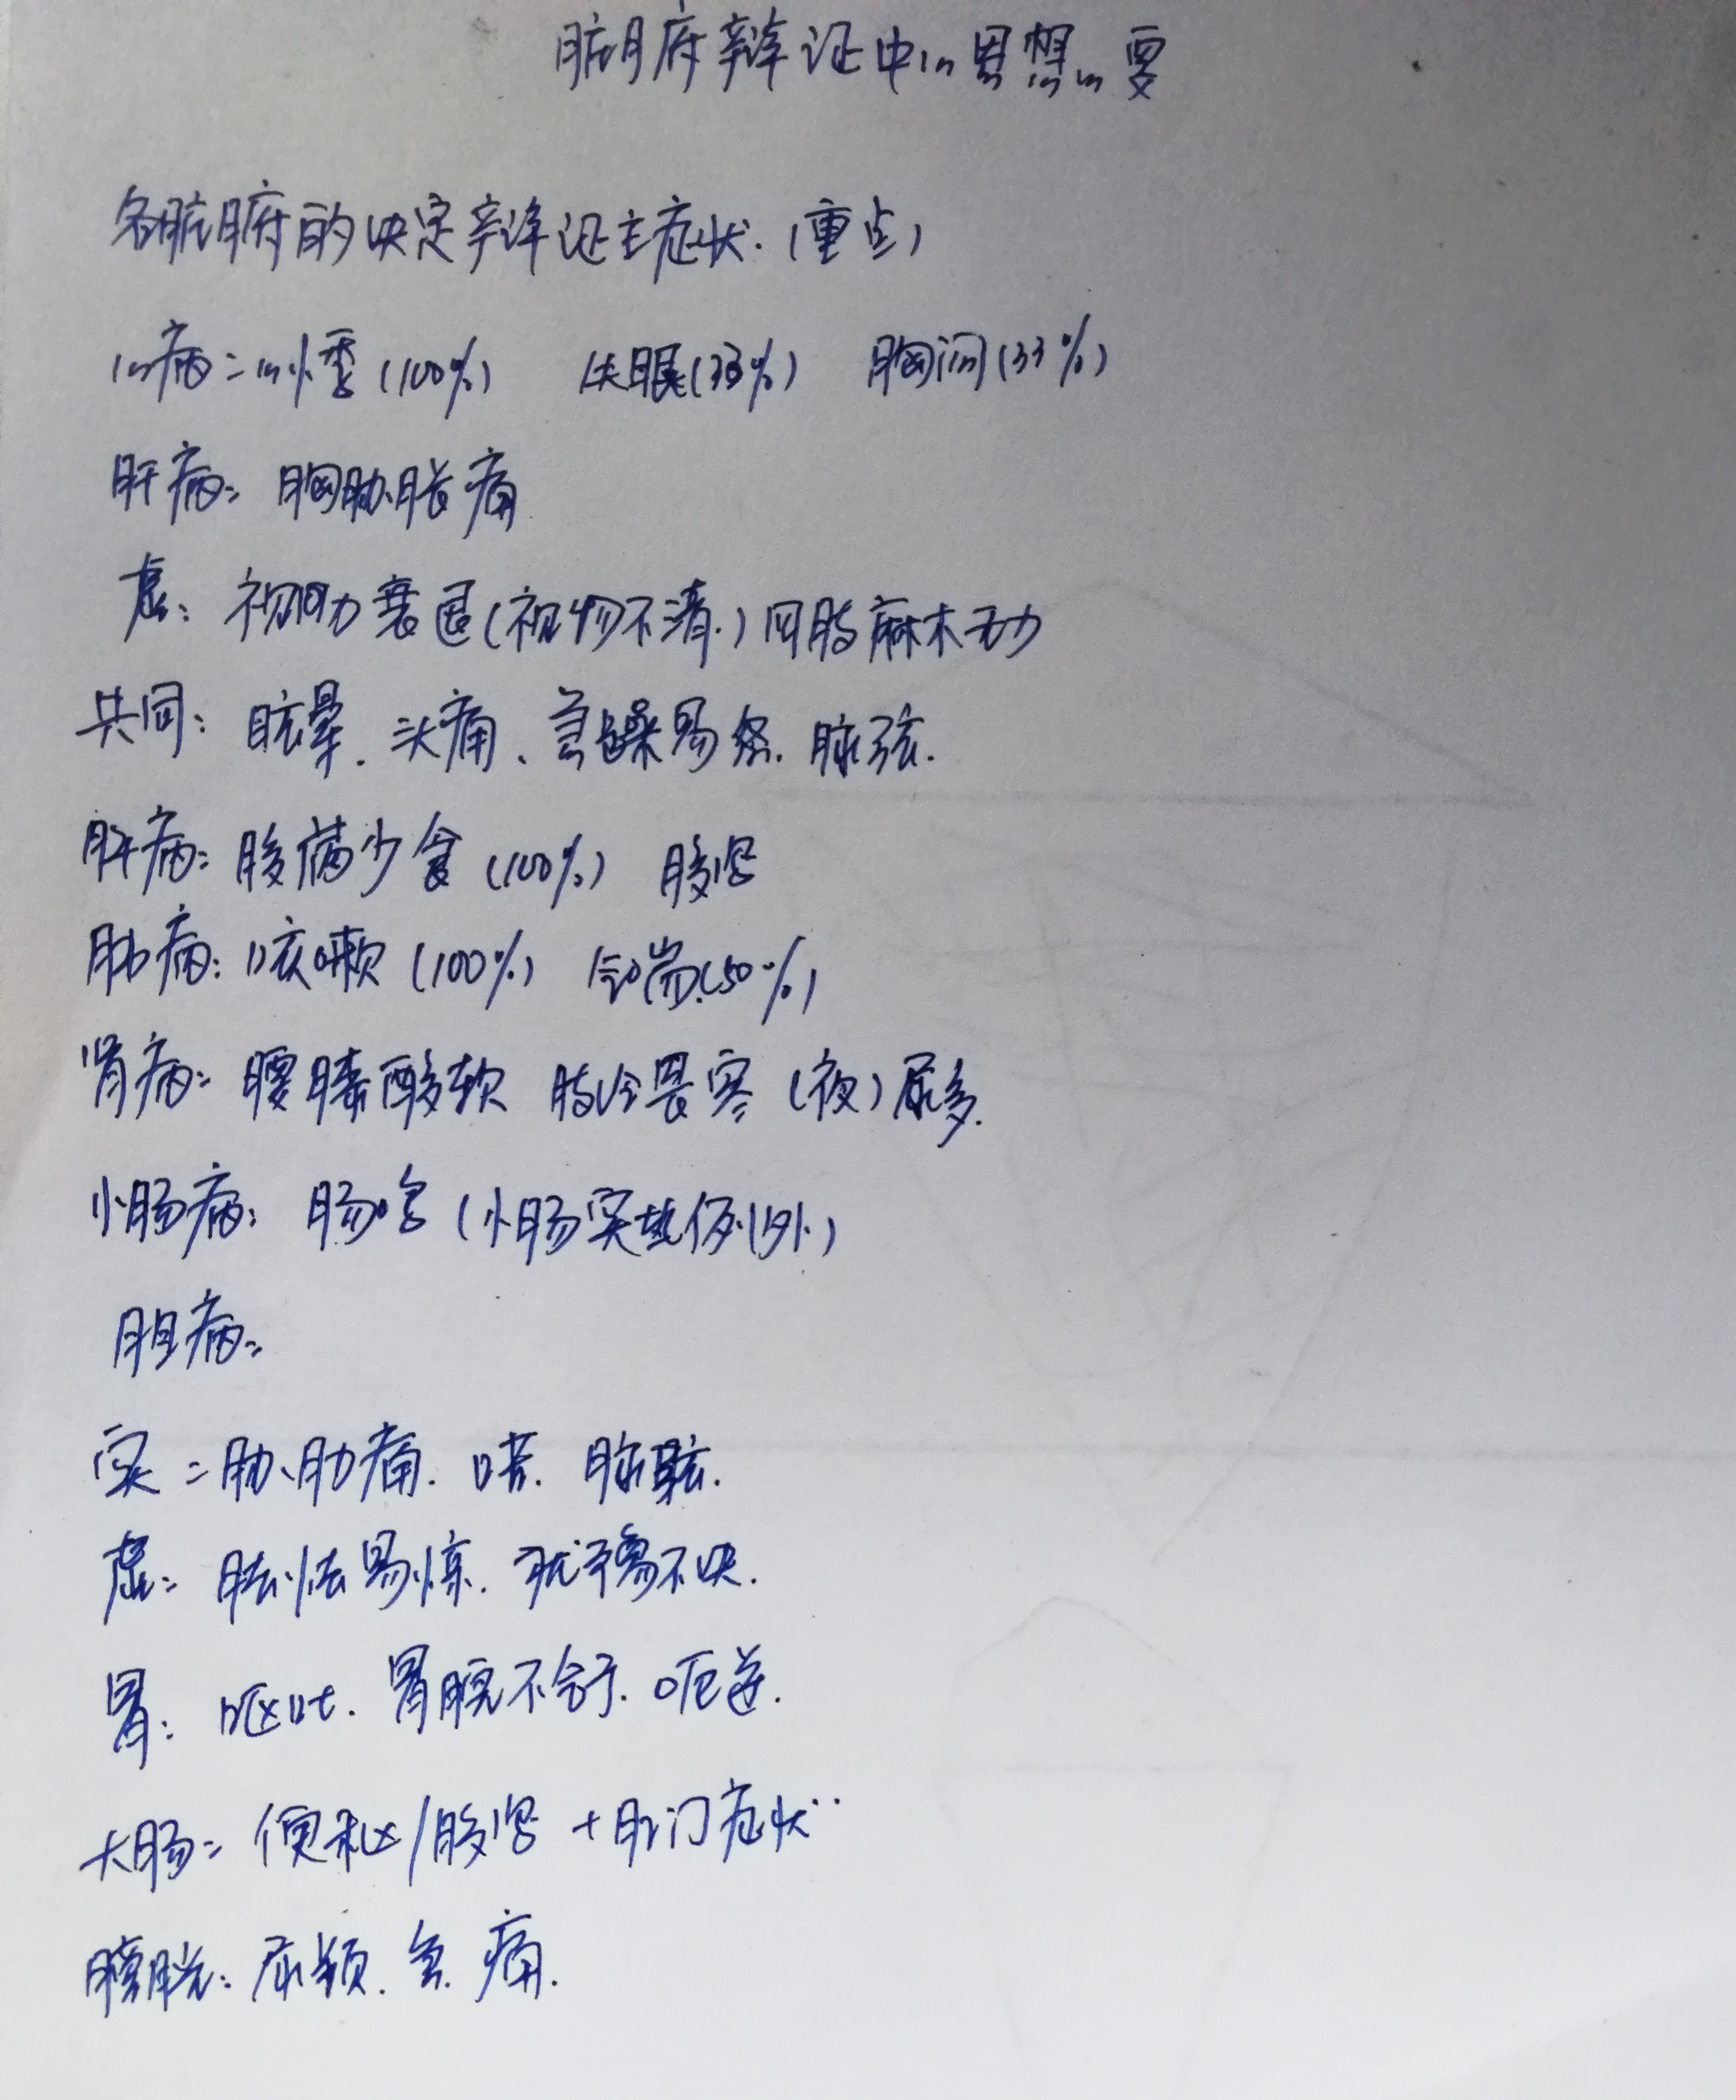 脏腑辩证中心思想心要
各脏腑的决定辩证主症状.(重点)
心病:心悸(100%) 失眠(33%) 胸闷(33%)
肝病:胸胁胀痛
虚:视力衰退(视物不清.)四肢麻木无力
共同:眩晕.头痛、急躁易怒.脉弦.
肝病:腹满少食(100%) 腹泻
肺病:咳嗽(100%) 气喘(50%)
肾病:腰膝酸软 肢冷畏寒(夜)尿多.
小肠病:肠鸣(小肠实热例外)
胆病:
实:胁肋痛.口苦.脉弦.
虚:胆怯易惊.犹豫不决.
胃:呕吐.胃脘不舒.呃逆.
大肠:便秘/腹泻+肛门症状
膀胱:尿频.急.痛.